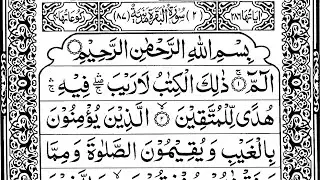 اٰيَاتُهَا ٢٨٦ (٢) سُوْرَةُ الْبَقَرَةِ مَدَنِيَّةٌ (٨٧) رُكُوْعَاتُهَا
بِسْمِ اللّٰهِ الرَّحْمٰنِ الرَّحِيْمِ
الٓمّٓ ۚ ذٰلِكَ الْكِتٰبُ لَا رَيْبَ ۛ فِيْهِ ۛ
هُدًى لِّلْمُتَّقِيْنَ ۙ الَّذِيْنَ يُؤْمِنُوْنَ
بِالْغَيْبِ وَيُقِيْمُوْنَ الصَّلٰوةَ وَمِمَّا